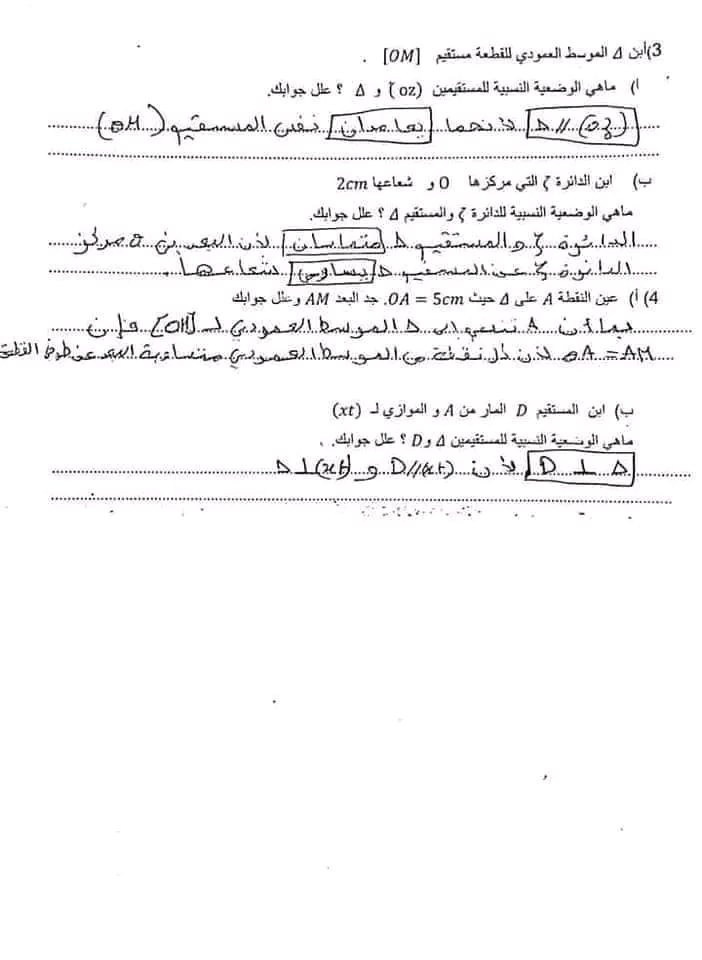 3)أبن Δ الموسط العمودي للقطعة مستقيم [OM] .
أ) ماهي الوضعية النسبية للمستقيمين (oz) و Δ ؟ علل جوابك.
(oz) // Δ لانهما يعامدان نفس المستقيم (OM)
ب) ابن الدائرة ζ التي مركزها O و شعاعها 2cm
ماهي الوضعية النسبية للدائرة ζ والمستقيم Δ ؟ علل جوابك.
الدائرة ζ و المستقيم Δ متماسان لان البعد بين o مركز
الدائرة ζ عن المستقيم Δ يساوي شعاعها.
4) أ) عين النقطة A على Δ حيث OA = 5cm. جد البعد AM وعلل جوابك
بما أن A تنتمي إلى Δ الموسط العمودي لـ [OM] فإن
OA = AM لان كل نقطة من الموسط العمودي متساوية البعد عن طرفي القطعة
ب) ابن المستقيم D المار من A و الموازي لـ (xt)
ماهي الوضعية النسبية للمستقيمين Δ و D ؟ علل جوابك.
Δ ⊥ D لان D//(xt) و Δ ⊥ (xt)